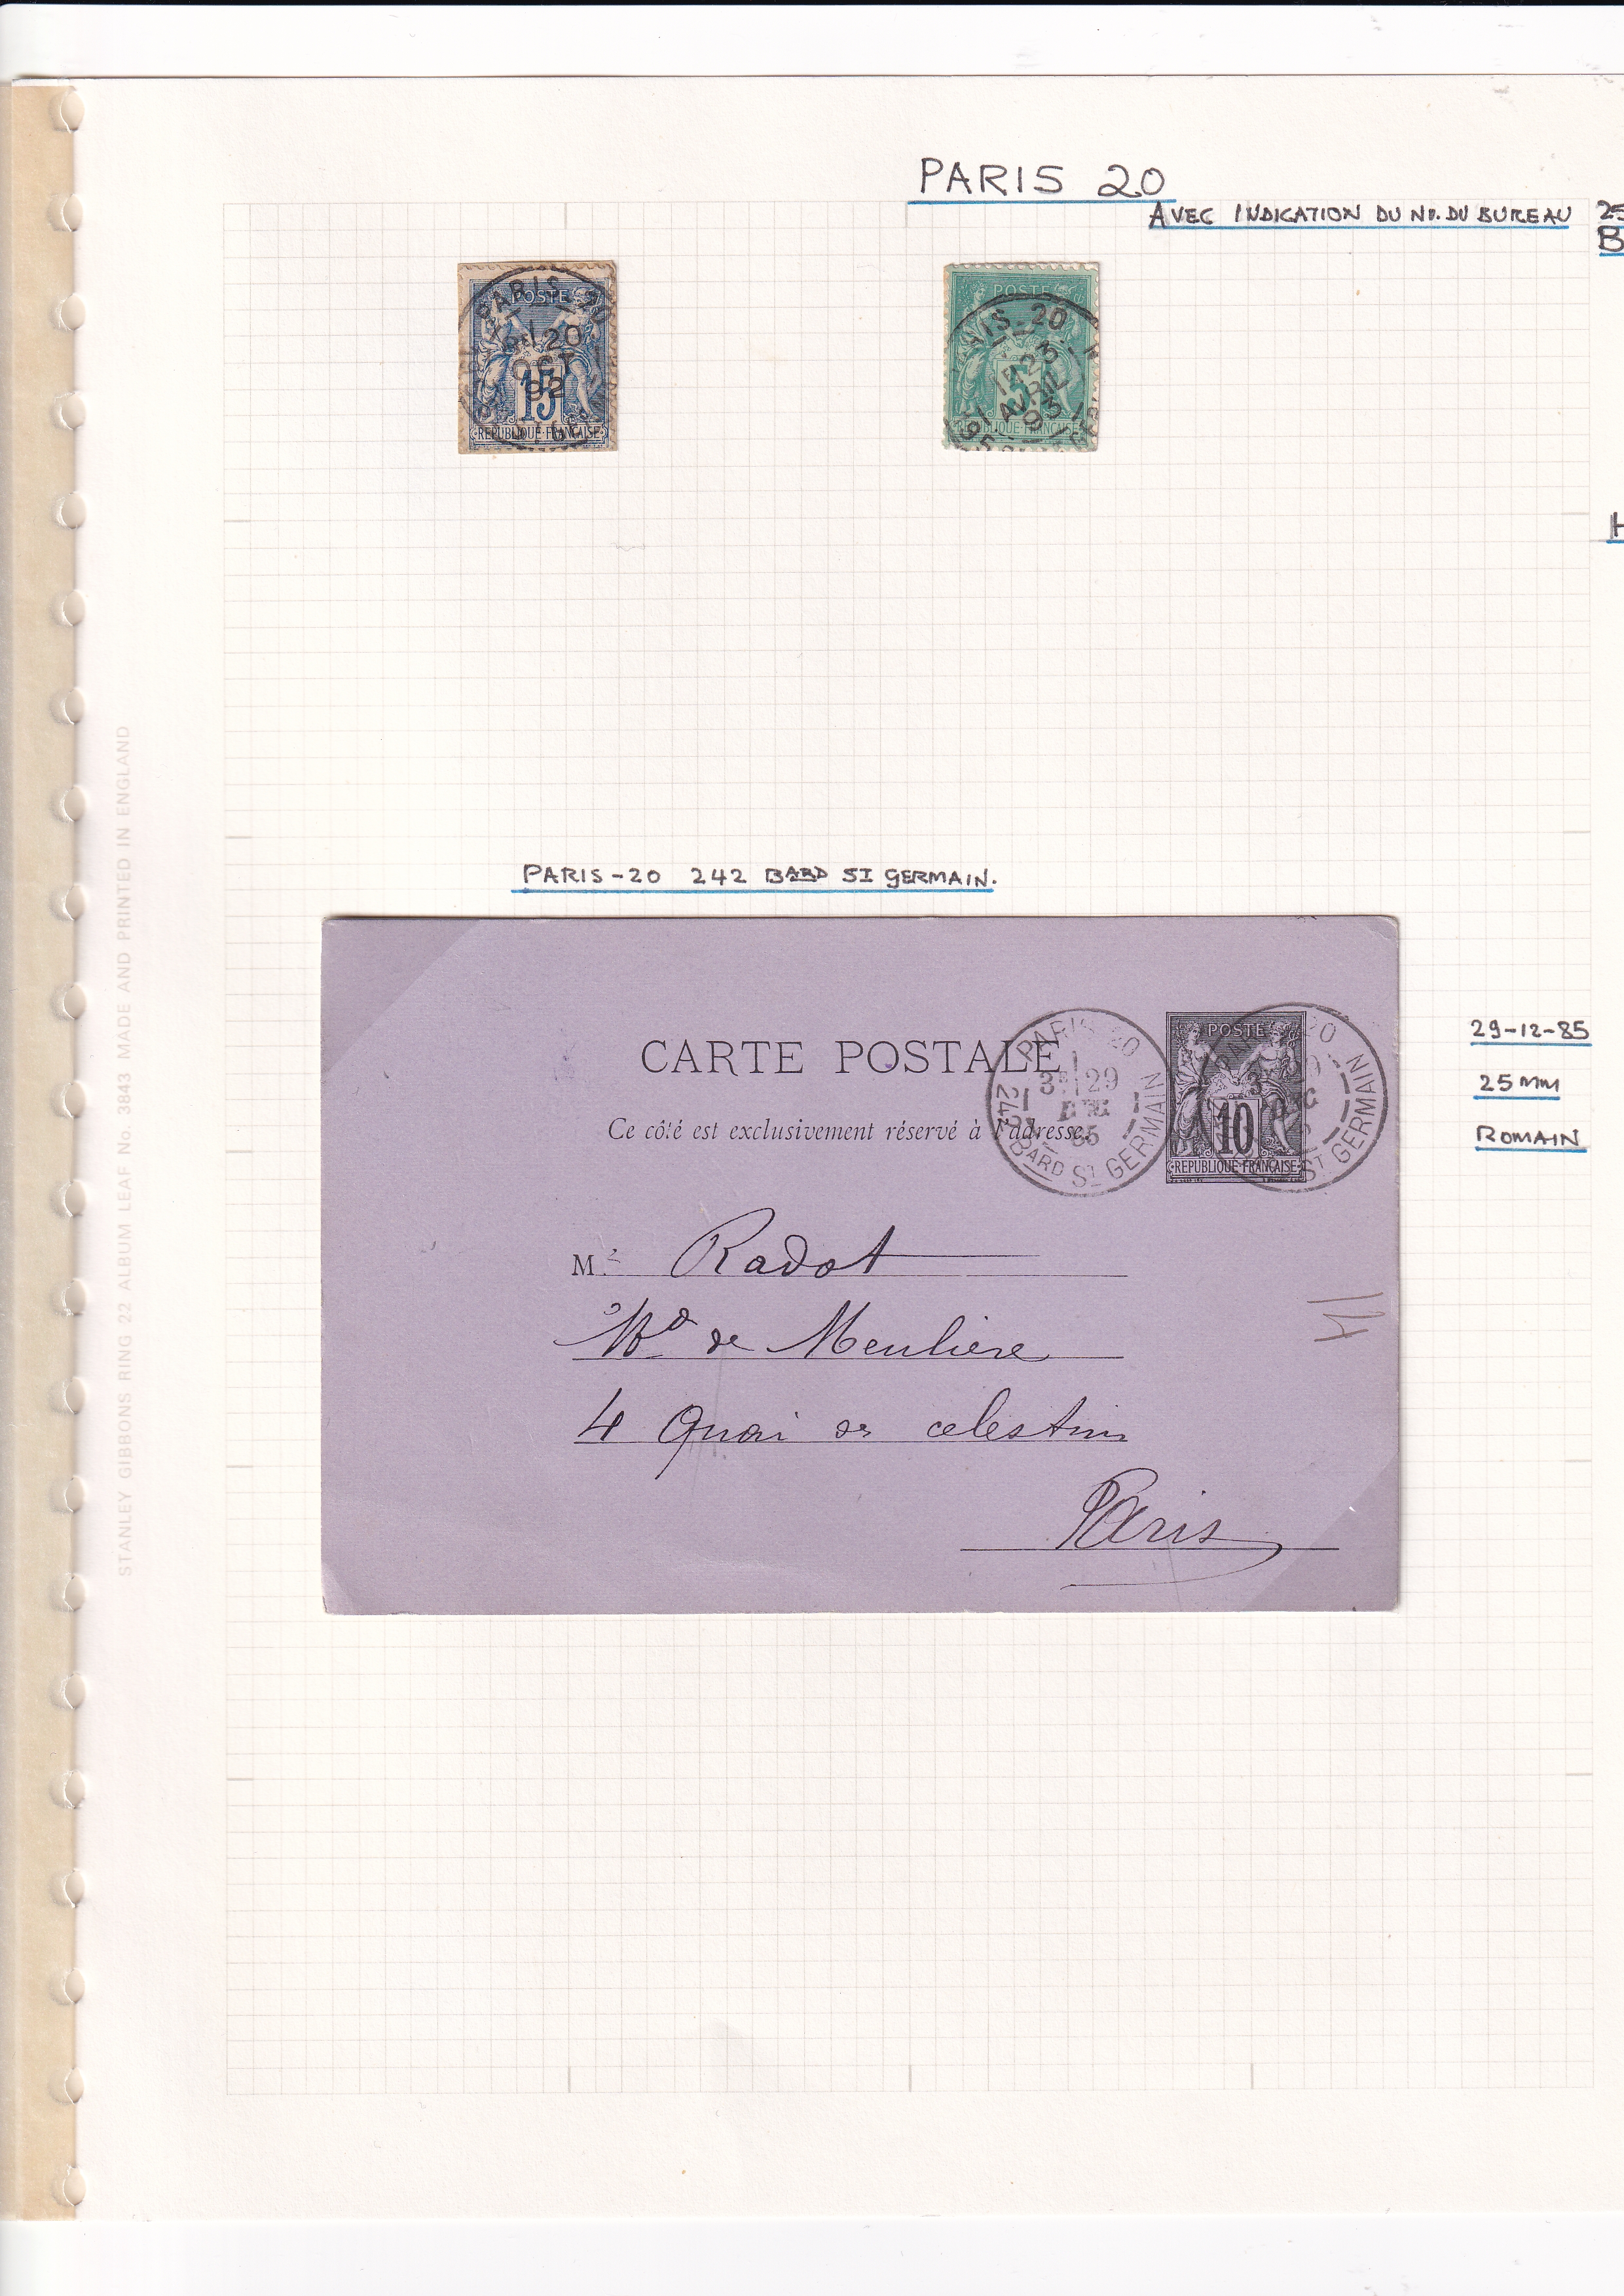 PARIS 20
AVEC INDICATION DU No. DU BUREAU
25
B
H
POSTE
PARIS
20
OCT
92
15
REPUBLIQUE FRANÇAISE
POSTE
20
23
AVRIL
93
5
REPUBLIQUE FRANÇAISE
PARIS-20 242 BARD ST GERMAIN.
CARTE POSTALE
Ce côté est exclusivement réservé à l'adresse.
PARIS 20
3E 29
DEC
85
242 BARD ST GERMAIN
POSTE
10
REPUBLIQUE FRANÇAISE
20
ST GERMAIN
29-12-85
25 MM
ROMAIN
Mr Radot
Md de Meulière
4 Quai des celestins
Paris
STANLEY GIBBONS RING 22 ALBUM LEAF No. 3843 MADE AND PRINTED IN ENGLAND